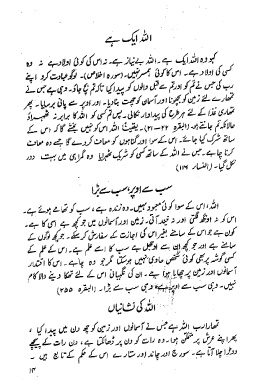 اللہ ایک ہے
کہو وہ اللہ ایک ہے۔ اللہ بے نیاز ہے۔ نہ اس کی کوئی اولاد ہے نہ وہ
کسی کی اولاد ہے۔ اس کا کوئی ہمسر نہیں۔ (سورہ اخلاص)۔ لوگو عبادت کرو اپنے
رب کی جس نے تم کو اور تم سے قبل والوں کو پیدا کیا تاکہ تم بچ جاؤ۔ وہی ہے جس نے
تمہارے لئے زمین کو بچھونا اور آسمان کو چھت بنا دیا۔ اور اوپر سے پانی برسایا۔ پھر
تمہاری غذا کے لئے ہر طرح کی پیداوار نکالی۔ پس تم کسی کو اللہ کا برابر نہ ٹھیراؤ
حالانکہ تم جانتے ہو۔ (البقرہ ۲۲ — ۲۱)۔ یقیناً اللہ اس کو نہیں بخشے گا کہ اس کے
ساتھ شرک کیا جائے۔ اس کے سوا اور گناہوں کو معاف کر دے گا جسے وہ معاف
کرنا چاہے۔ جس نے اللہ کے ساتھ کسی کو شریک ٹھیرایا وہ گمراہی میں بہت دور
نکل گیا۔ (النساء ۱۱۶)
سب سے اوپر، سب سے بڑا
اللہ، اس کے سوا کوئی معبود نہیں۔ وہ زندہ ہے، سب کو تھامے ہوئے ہے۔
اس کو نہ اونگھ لگتی اور نہ نیند آتی۔ زمین اور آسمانوں میں جو کچھ ہے اسی کا ہے۔
کون ہے جو اس کے سامنے بغیر اس کی اجازت کے سفارش کر سکے۔ جو کچھ لوگوں کے
سامنے ہے اور جو کچھ ان سے اوجھل ہے سب کا اسے علم ہے۔ اس کے علم کے
کسی گوشہ پر بھی کوئی شخص حاوی نہیں ہو سکتا مگر جو وہ چاہے۔ اس کا اقتدار
آسمانوں اور زمین پر چھایا ہوا ہے۔ ان کی نگہبانی اس کے لئے تھکا دینے والا کام
نہیں۔ وہی سب سے اوپر ہے، وہی سب سے بڑا۔ (البقرہ ۲۵۵)
اللہ کی نشانیاں
تمہارا رب اللہ ہے جس نے آسمانوں اور زمین کو چھ دن میں پیدا کیا۔
پھر اپنے عرش پر متمکن ہوا۔ وہ رات کو دن پر ڈھانکتا ہے، دن رات کے پیچھے
دوڑا چلا آتا ہے۔ سورج اور چاند اور ستارے اس کے حکم کے تابع ہیں۔
۱۳